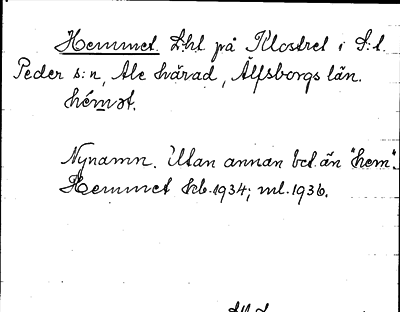 Hemmet. L:ht på Klostret i S:t
Peder s:n, Ale härad, Älfsborgs län.
hémət.
Nynamn. Utan annan bet. än "hem".
Hemmet kb. 1934; ml. 1936.